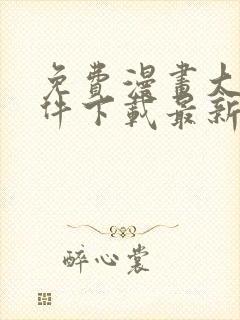 免費漫畫大
件下載最新
醉心裳